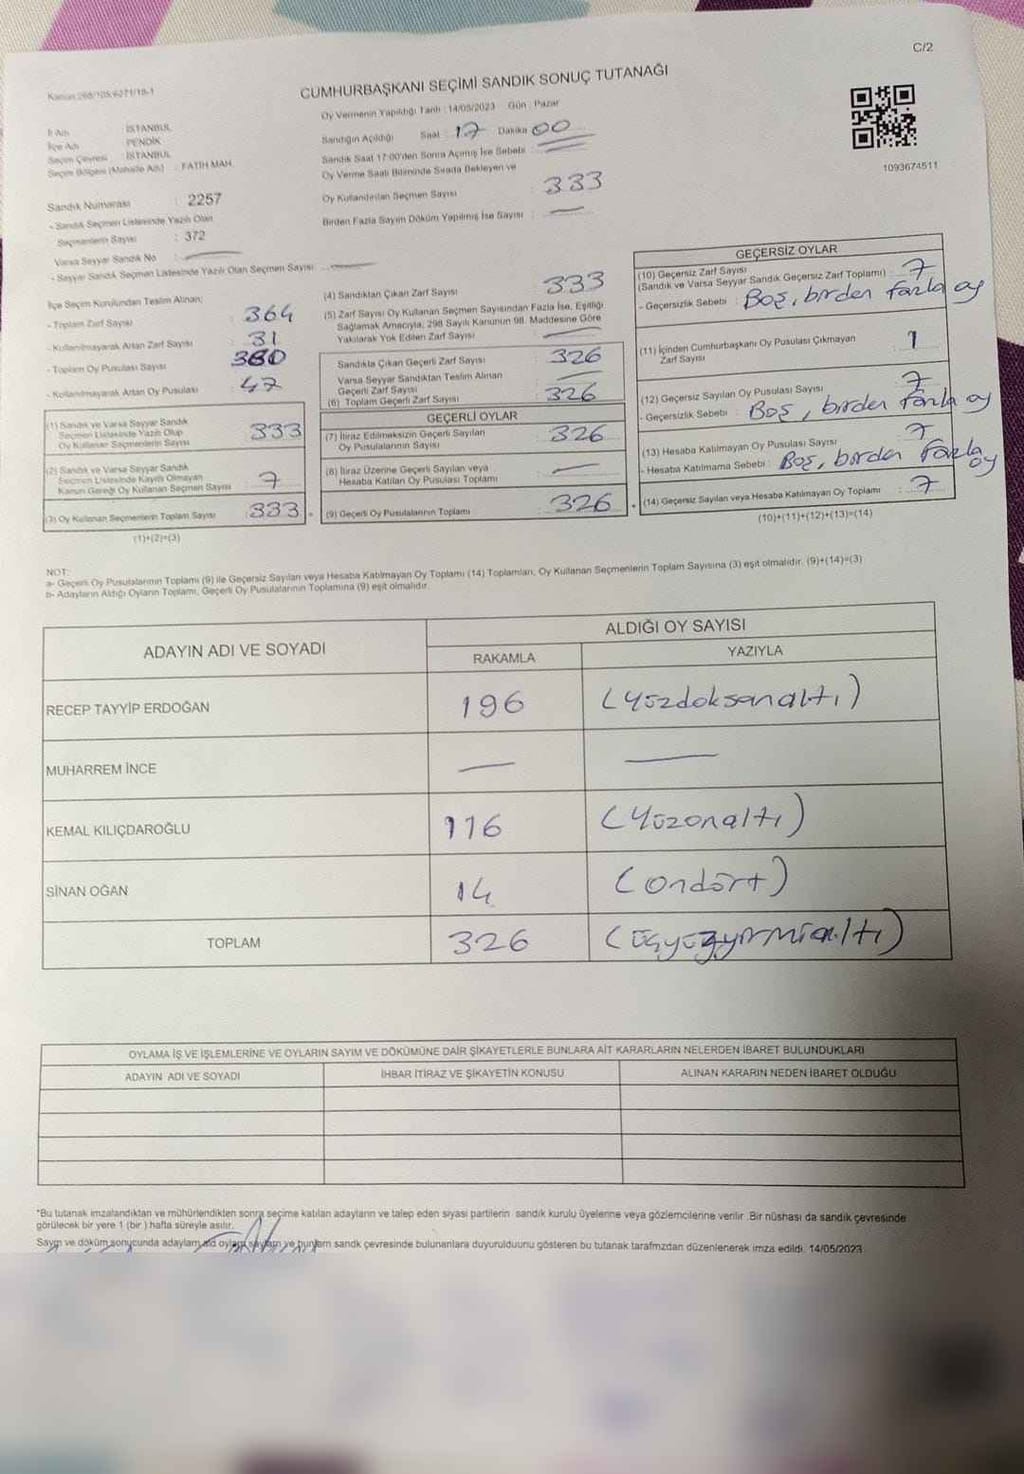 C/2
Kanun:298/105;6271/18-1
CUMHURBAŞKANI SEÇİMİ SANDIK SONUÇ TUTANAĞI
İl Adı : İSTANBUL
İlçe Adı : PENDİK
Seçim Çevresi : İSTANBUL
Seçim Bölgesi (Mahalle Adı) : FATİH MAH.
Sandık Numarası : 2257
- Sandık Seçmen Listesinde Yazılı Olan
Seçmenlerin Sayısı : 372
Varsa Seyyar Sandık No :
- Seyyar Sandık Seçmen Listesinde Yazılı Olan Seçmen Sayısı :
Oy Vermenin Yapıldığı Tarih : 14/05/2023 Gün : Pazar
Sandığın Açıldığı Saat 17 Dakika 00
Sandık Saat 17:00'den Sonra Açılmış İse Sebebi :
Oy Verme Saati Bitiminde Sırada Bekleyen ve
Oy Kullandırılan Seçmen Sayısı : 333
Birden Fazla Sayım Döküm Yapılmış İse Sayısı :
1093674511
İlçe Seçim Kurulundan Teslim Alınan;
- Toplam Zarf Sayısı : 364
- Kullanılmayarak Artan Zarf Sayısı : 31
- Toplam Oy Pusulası Sayısı : 380
- Kullanılmayarak Artan Oy Pusulası : 47
(1) Sandık ve Varsa Seyyar Sandık
Seçmen Listesinde Yazılı Olup
Oy Kullanan Seçmenlerin Sayısı : 333
(2) Sandık ve Varsa Seyyar Sandık
Seçmen Listesinde Kayıtlı Olmayan
Kanun Gereği Oy Kullanan Seçmen Sayısı : 7
(3) Oy Kullanan Seçmenlerin Toplam Sayısı : 333
(1)+(2)=(3)
(4) Sandıktan Çıkan Zarf Sayısı : 333
(5) Zarf Sayısı Oy Kullanan Seçmen Sayısından Fazla İse, Eşitliği
Sağlamak Amacıyla, 298 Sayılı Kanunun 98. Maddesine Göre
Yakılarak Yok Edilen Zarf Sayısı :
Sandıkta Çıkan Geçerli Zarf Sayısı : 326
Varsa Seyyar Sandıktan Teslim Alınan
Geçerli Zarf Sayısı :
(6) Toplam Geçerli Zarf Sayısı : 326
GEÇERLİ OYLAR
(7) İtiraz Edilmeksizin Geçerli Sayılan
Oy Pusulalarının Sayısı : 326
(8) İtiraz Üzerine Geçerli Sayılan veya
Hesaba Katılan Oy Pusulası Toplamı :
= (9) Geçerli Oy Pusulalarının Toplamı : 326
GEÇERSİZ OYLAR
(10) Geçersiz Zarf Sayısı : 7
(Sandık ve Varsa Seyyar Sandık Geçersiz Zarf Toplamı)
- Geçersizlik Sebebi : Boş, birden fazla oy
(11) İçinden Cumhurbaşkanı Oy Pusulası Çıkmayan
Zarf Sayısı : 1
(12) Geçersiz Sayılan Oy Pusulası Sayısı : 7
- Geçersizlik Sebebi : Boş, birden fazla oy
(13) Hesaba Katılmayan Oy Pusulası Sayısı : 7
- Hesaba Katılmama Sebebi : Boş, birden fazla oy
+ (14) Geçersiz Sayılan veya Hesaba Katılmayan Oy Toplamı : 7
(10)+(11)+(12)+(13)=(14)
NOT:
a- Geçerli Oy Pusulalarının Toplamı (9) ile Geçersiz Sayılan veya Hesaba Katılmayan Oy Toplamı (14) Toplamları, Oy Kullanan Seçmenlerin Toplam Sayısına (3) eşit olmalıdır. (9)+(14)=(3)
b- Adayların Aldığı Oyların Toplamı, Geçerli Oy Pusulalarının Toplamına (9) eşit olmalıdır.
ADAYIN ADI VE SOYADI
ALDIĞI OY SAYISI
RAKAMLA YAZIYLA
RECEP TAYYİP ERDOĞAN 196 (Yüzdoksanaltı)
MUHARREM İNCE
KEMAL KILIÇDAROĞLU 116 (Yüzonaltı)
SİNAN OĞAN 14 (ondört)
TOPLAM 326 (üçyüzyirmialtı)
OYLAMA İŞ VE İŞLEMLERİNE VE OYLARIN SAYIM VE DÖKÜMÜNE DAİR ŞİKAYETLERLE BUNLARA AİT KARARLARIN NELERDEN İBARET BULUNDUKLARI
ADAYIN ADI VE SOYADI İHBAR İTİRAZ VE ŞİKAYETİN KONUSU ALINAN KARARIN NEDEN İBARET OLDUĞU
*Bu tutanak imzalandıktan ve mühürlendikten sonra seçime katılan adayların ve talep eden siyasi partilerin sandık kurulu üyelerine veya gözlemcilerine verilir. Bir nüshası da sandık çevresinde
görülecek bir yere 1 (bir ) hafta süreyle asılır.
Sayım ve döküm sonucunda adayların ad oyların sayıları ve bunların sandık çevresinde bulunanlara duyurulduunu gösteren bu tutanak tarafımızdan düzenlenerek imza edildi. 14/05/2023